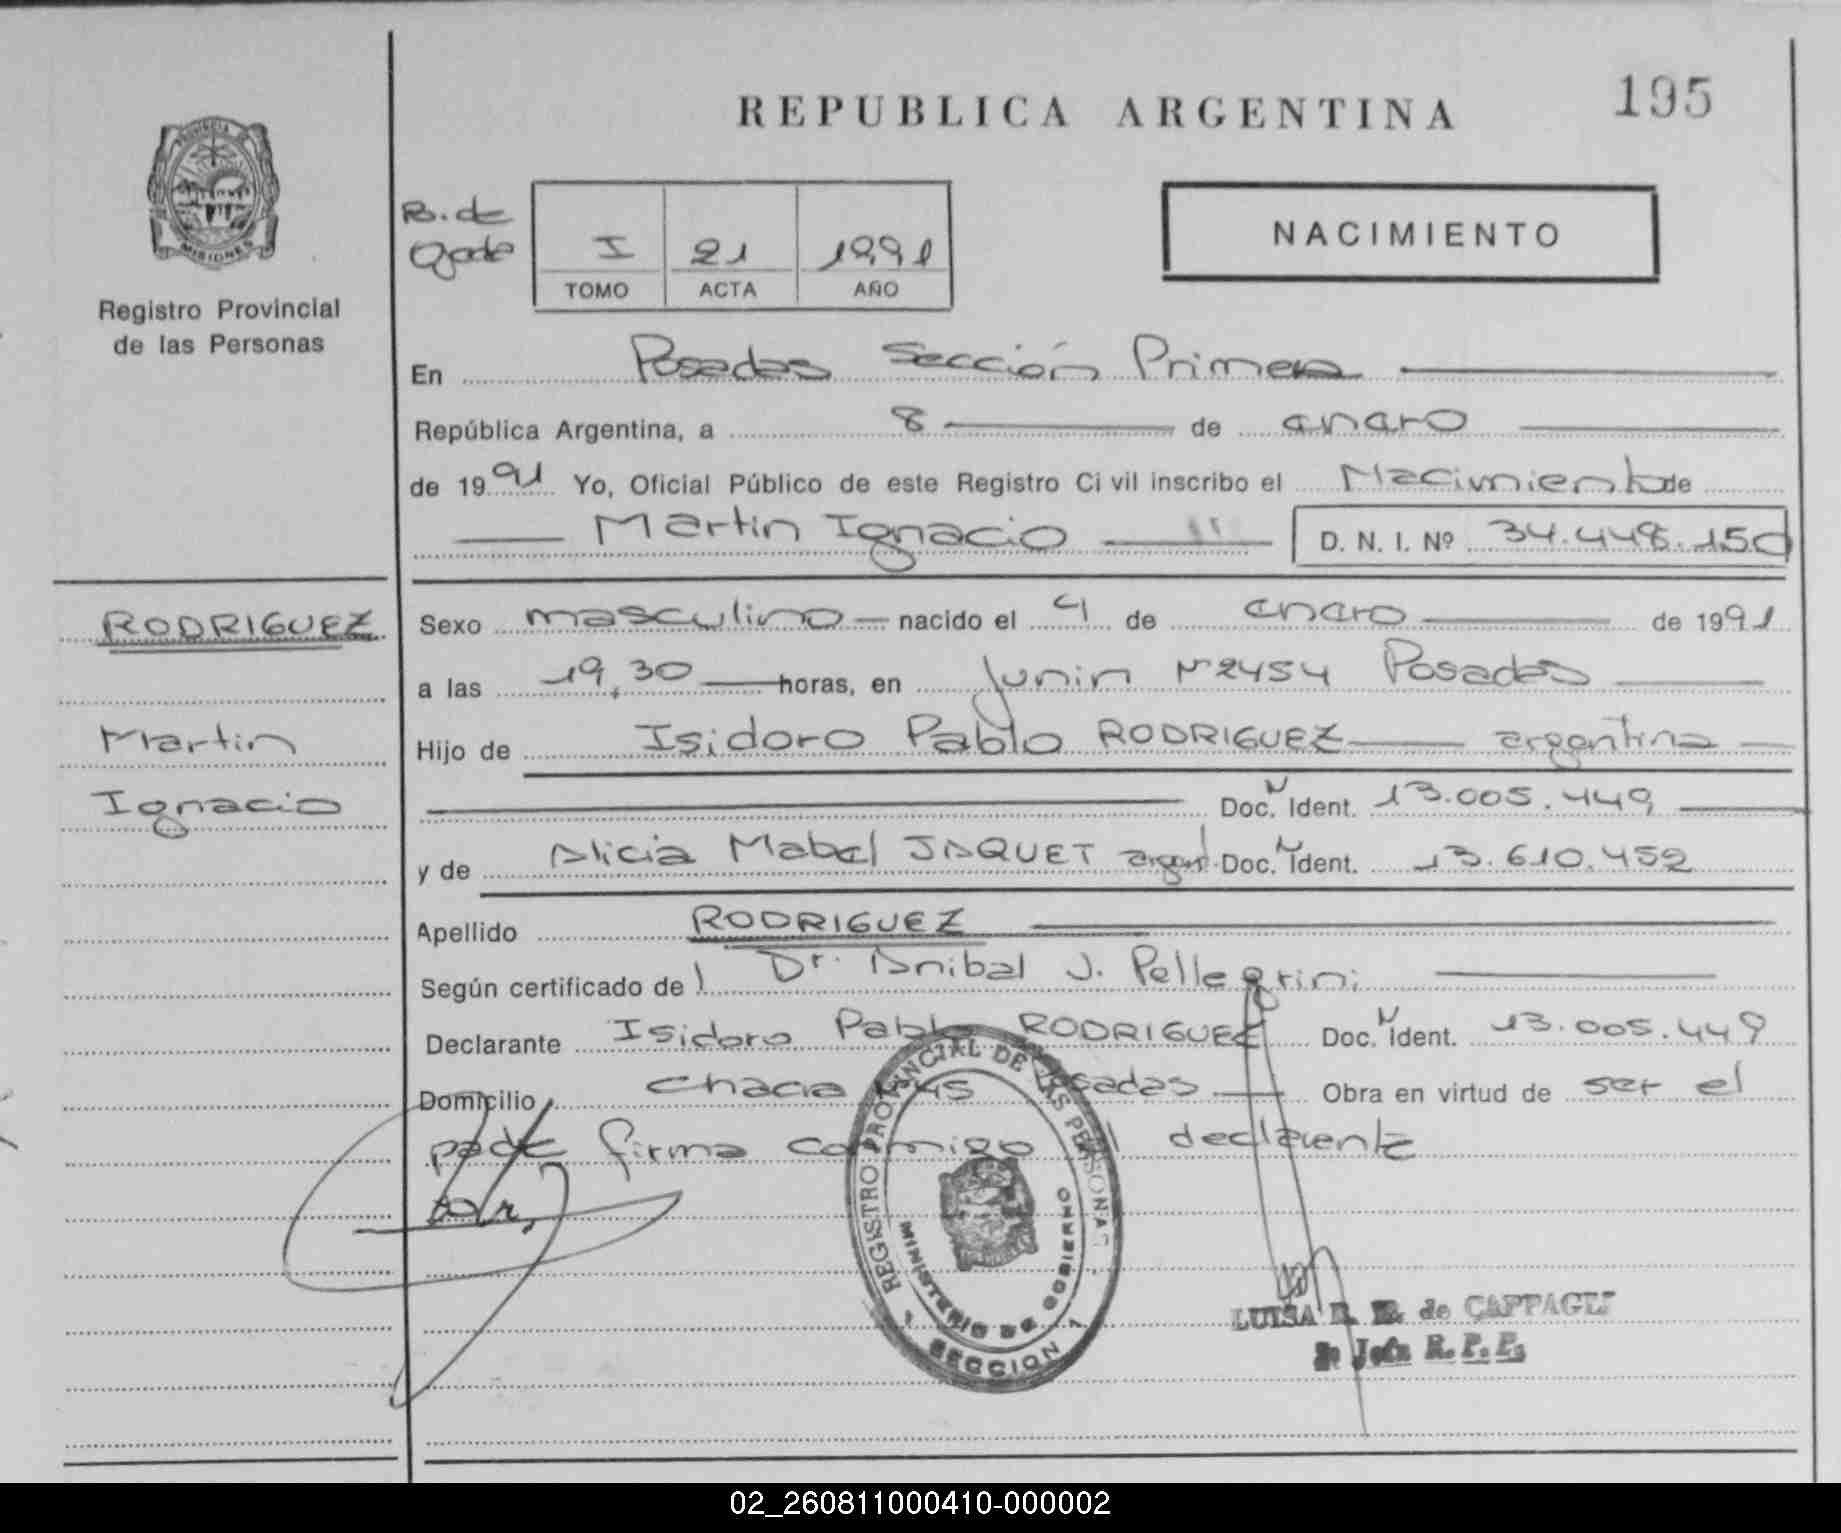 REPUBLICA ARGENTINA
195
PROVINCIA DE
MISIONES
Registro Provincial
de las Personas
B. de
I 21 1991
TOMO ACTA AÑO
NACIMIENTO
En Posadas Sección Primera
República Argentina, a 8 de enero
de 1991 Yo, Oficial Público de este Registro Civil inscribo el Nacimiento de
Martin Ignacio D. N. I. Nº 34.448.150
RODRIGUEZ
Martin
Ignacio
Sexo masculino nacido el 4 de enero de 1991
a las 19,30 horas, en Junin Nº 2454 Posadas
Hijo de Isidoro Pablo RODRIGUEZ argentina
Doc. N Ident. 13.005.449
y de Alicia Mabel JAQUET argent. Doc. N Ident. 13.610.452
Apellido RODRIGUEZ
Según certificado de l Dr. Anibal J. Pellegrini
Declarante Isidoro Pablo RODRIGUEZ Doc. N Ident. 13.005.449
Domicilio Chacra Posadas Obra en virtud de ser el
padre firma conmigo el declarente
REGISTRO PROVINCIAL DE LAS PERSONAS
MINISTERIO DE GOBIERNO
SECCION 1
LUISA de CAPPAGLI
Jefa R. P. P.
02_260811000410-000002